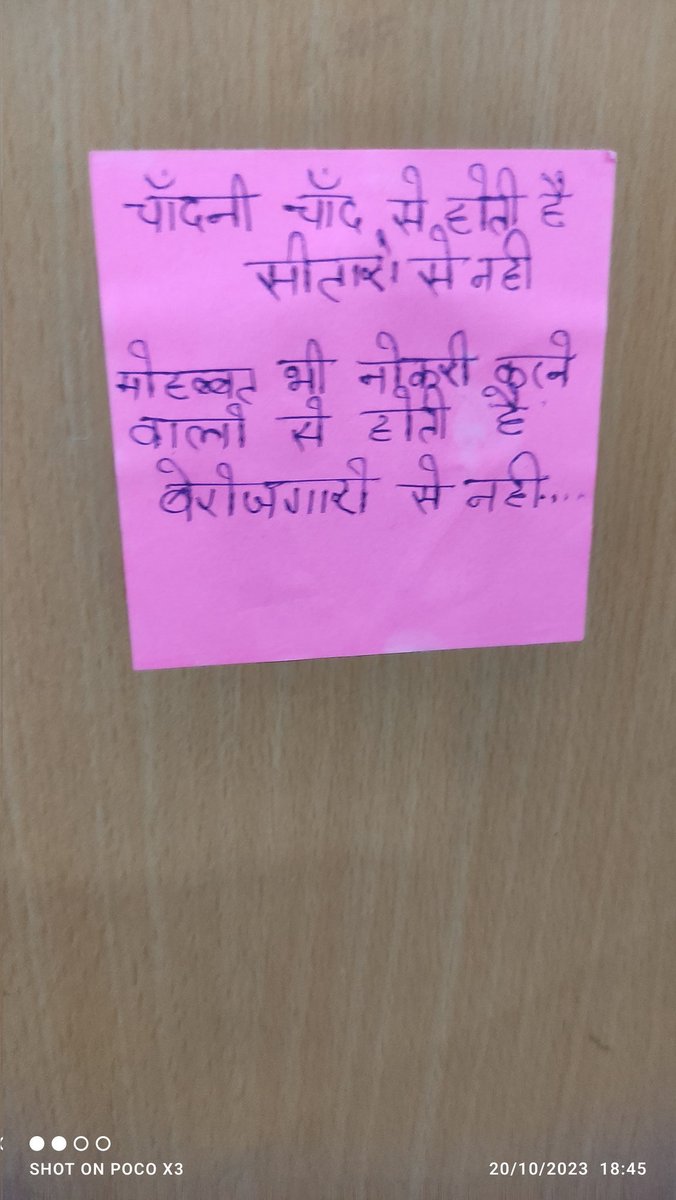 चाँदनी चाँद से होती है
सीतारो से नही
मोहब्बत भी नोकरी करने
वालो से होती है
बेरोजगारो से नही....
SHOT ON POCO X3
20/10/2023 18:45